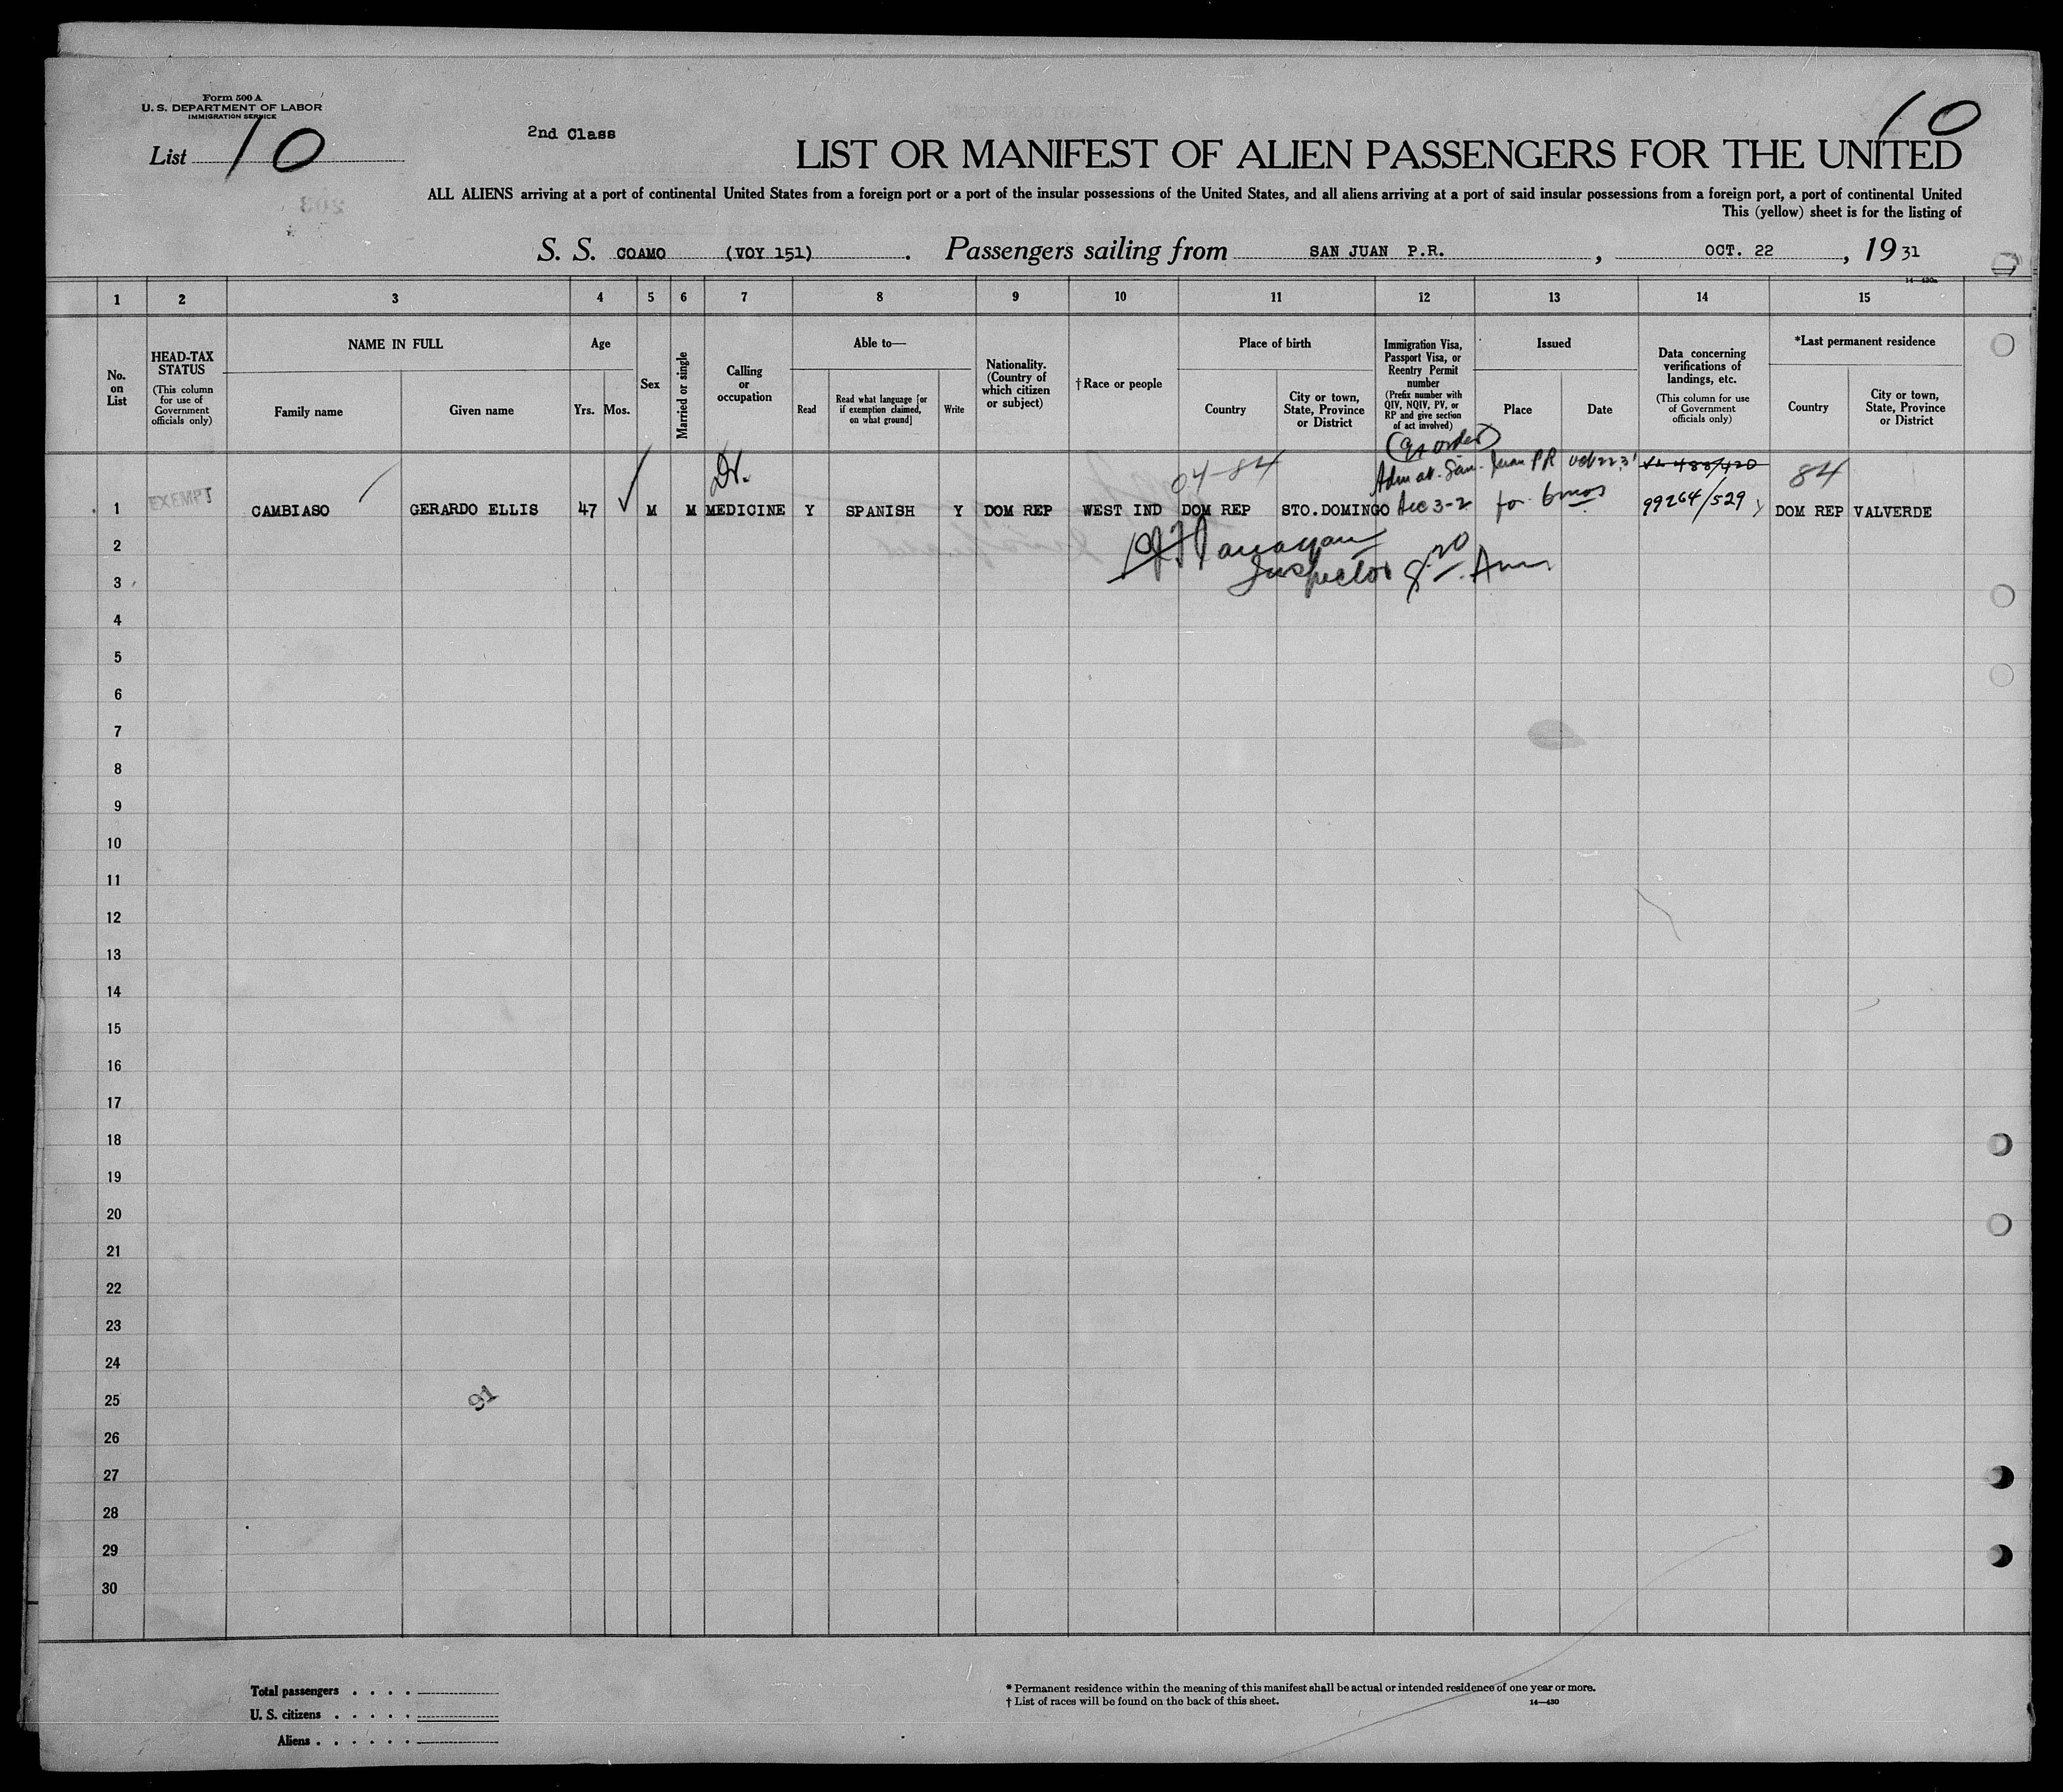 Form 500 A
U. S. DEPARTMENT OF LABOR
IMMIGRATION SERVICE
List 10
2nd Class
10
LIST OR MANIFEST OF ALIEN PASSENGERS FOR THE UNITED
ALL ALIENS arriving at a port of continental United States from a foreign port or a port of the insular possessions of the United States, and all aliens arriving at a port of said insular possessions from a foreign port, a port of continental United
This (yellow) sheet is for the listing of
S. S. COAMO (VOY 151). Passengers sailing from SAN JUAN P.R., OCT. 22, 1931
14—430a
1 2 3 4 5 6 7 8 9 10 11 12 13 14 15
No. on List
HEAD-TAX STATUS
(This column for use of Government officials only)
NAME IN FULL
Family name
Given name
Age
Yrs. Mos.
Sex
Married or single
Calling or occupation
Able to—
Read
Read what language [or if exemption claimed, on what ground]
Write
Nationality. (Country of which citizen or subject)
†Race or people
Place of birth
Country
City or town, State, Province or District
Immigration Visa, Passport Visa, or Reentry Permit number
(Prefix number with QIV, NQIV, PV, or RP and give section of act involved)
Issued
Place
Date
Data concerning verifications of landings, etc.
(This column for use of Government officials only)
*Last permanent residence
Country
City or town, State, Province or District
Dr. 04-84 Adm at San Juan PR Oct 22 31 84
1 EXEMPT CAMBIASO GERARDO ELLIS 47 M M MEDICINE Y SPANISH Y DOM REP WEST IND DOM REP STO.DOMINGO Sec 3-2 for 6 mos 99264/529 DOM REP VALVERDE
2
Inspector
3
4
5
6
7
8
9
10
11
12
13
14
15
16
17
18
19
20
21
22
23
24
25
91
26
27
28
29
30
Total passengers . . . .
U. S. citizens . . . . .
Aliens . . . . . .
* Permanent residence within the meaning of this manifest shall be actual or intended residence of one year or more.
† List of races will be found on the back of this sheet.
14—430